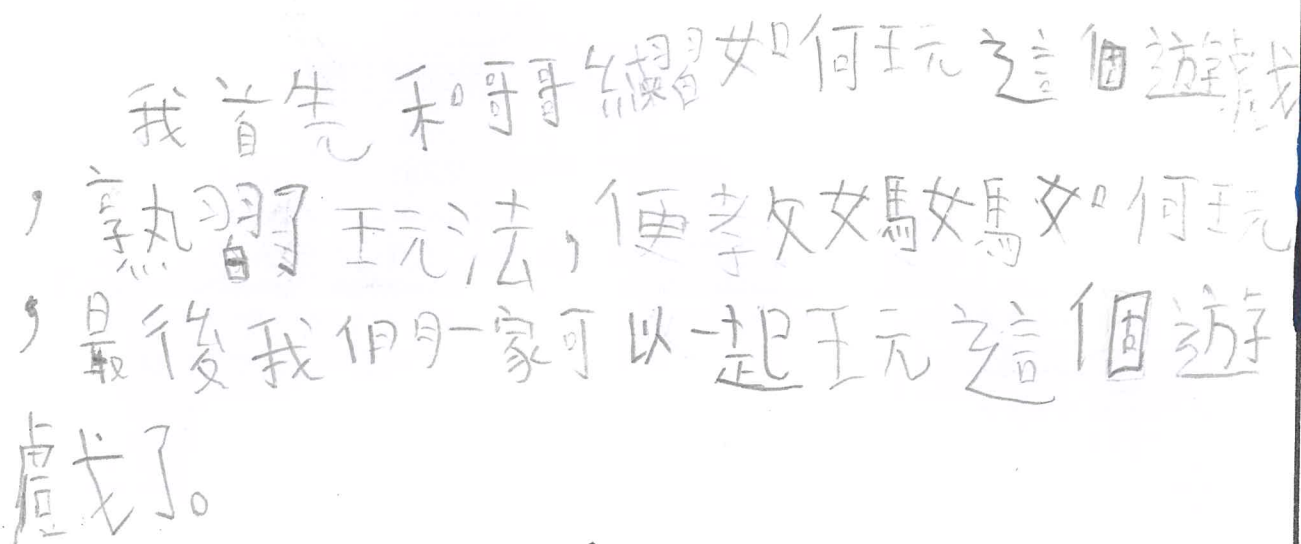 我首先和哥哥練習如何玩這個遊戲
，熟習了玩法，便教媽媽如何玩
，最後我們一家可以一起玩這個遊
戲了。